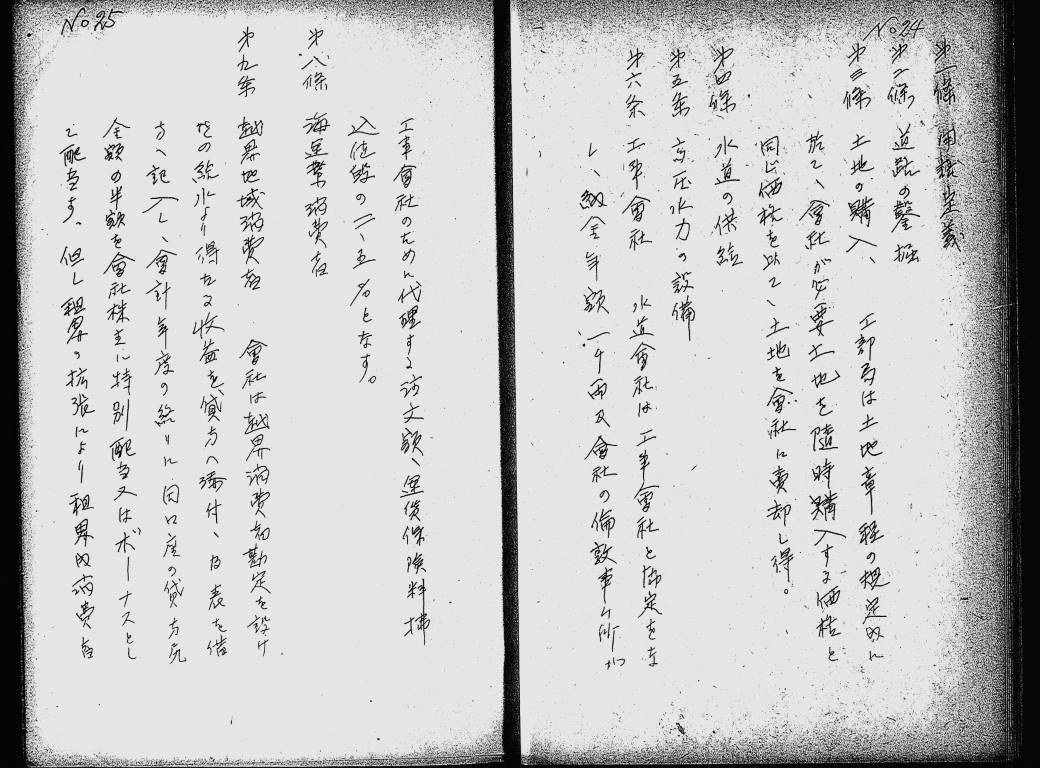 No 24
第一條 用語定義
第二條 道路の鑿掘
第三條 土地の購入、 工部局は土地章程の規定内に
於て、會社が必要土地を随時購入する価格と
同じ価格を以て、土地を會社に賣却し得。
第四條 水道の供給
第五条 高圧水力の設備
第六条 工事會社 水道會社は工事會社と協定をな
し、納金年額一千両及會社の倫敦事ム所が
No 25
工事會社のために代理する註文額、運賃保険料拂
込値段の二、五%となす。
第八條 海運業消費者
第九条 越界地域消費者 會社は越界消費者勘定を設け
その給水より得たる收益を、貸方へ添付、 表を借
方へ記入し、會計年度の終りに同口座の貸方
金額の半額を會社株主に特別配当又はボーナスとし
て配当す、但し租界の拡張により租界内消費者